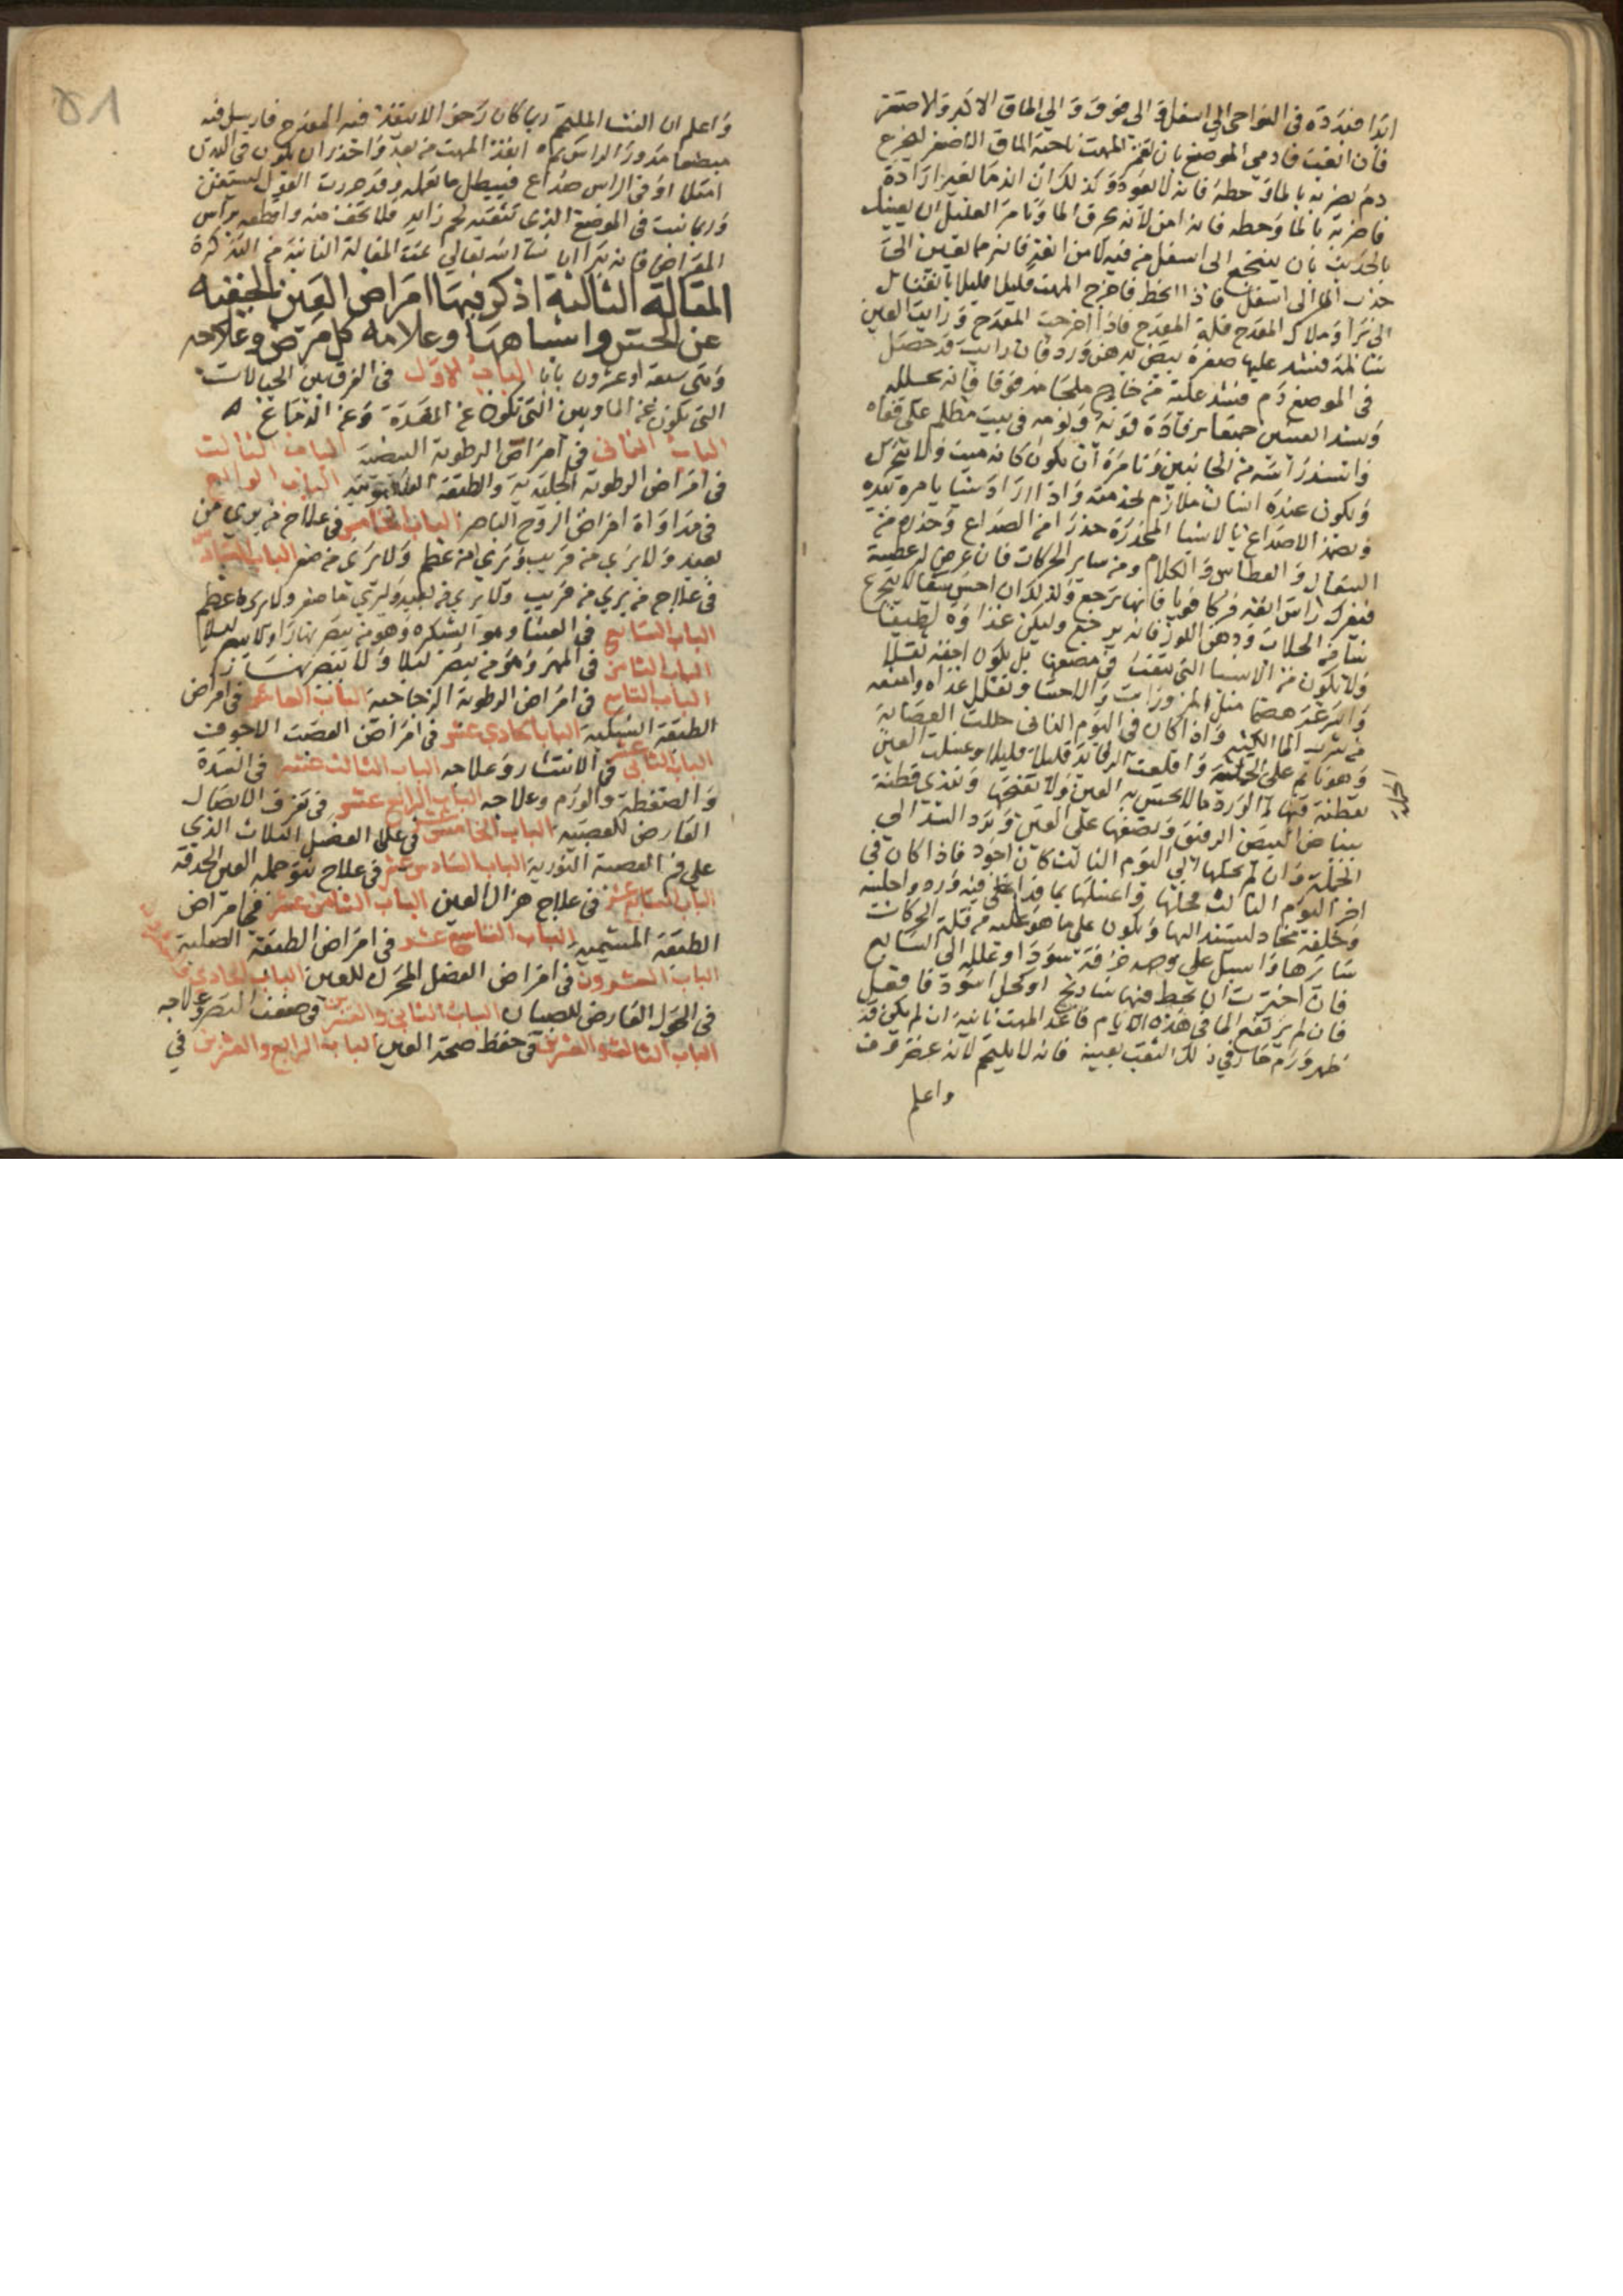 ابدا منفردة في النواحي الى اسفل والى فوق والى الماق الاكبر والاصغر
فان انغب فادمي الموضع بان تغمز المهت ناحية الماق الاصغر ليخرج
دم يضربه بالماء وحطه فانه لا يعود وكذلك ان اندما بغير ارادة
فاضربه بالماء وحطه فانه امن لانه يحرق الماء وتامر العليل ان يعينك
بالحديث بان يتنخع الى اسفل من فيه لا من انفه فانه مما يعين
جذب الماء الى اسفل فاذا انحط فاخرج المهت قليلا قليلا بانفتال
الى برا وملاك المقدح قلة المقدح فاذا اخرجت المقدح ورايت العين
سالمة فشد عليها صفرة بيض بدهن ورد فان رايت قد حصل
في الموضع دم فشد عليه من خارج ملحا مدقوقا فانه يحلله
وشد العينين جميعا برفادة قوية ونومه في بيت مظلم على قفاه
واسند راسه من الجانبين وتامره ان يكون كانه ميت ولا يتحرك
ويكون عنده انسان ملازم لخدمته واذا اراد شيا يامره بيده
وتضمد الاصداغ بالاشيا المخدرة حذرا من الصداع وحذره من
السعال والعطاس والكلام ومن ساير الحركات فان عرض له عطسة
فيفرك راس انفه فركا قويا فانها ترجع وكذلك ان احس بسعال يتجرع
شيا من الجلاب ودهن اللوز فانه يرجع وليكن غذاوه لطيفا
ولا يكون من الاشيا التي يتعب في مضغها بل يكون اخفه نقلا
واسرعه هضما مثل المزورات والاحسا وتقلل غذاه وامنعه
من شرب الماء الكثير واذا كان في اليوم الثاني حللت العصابة
وهو نايم على الجملة واقلعت الرفائد قليلا قليلا وغسلت العين
بقطنة فيها ماء الورد ما لا يحس به العين ولا تفتحها وتغدى قطنة
ببياض البيض الرقيق وتضعها على العين وترد الشد الى
الجملة وان لم تحلها الى اليوم الثالث كان اجود فاذا كان في
اخر اليوم الثالث فحلها واغسلها بما قد اغلي فيه ورد واجلسه
وخلفه مخاد ليستند اليها ويكون على ما هو عليه من قلة الحركات
سايرها واسبل على وجهه خرقة سودا وعلله الى السابع
فان اخترت ان تحط فيها شاذنج او كحل اسود فافعل
فان لم يرتفع الماء في هذه الايام فاعد المهت ثانية ان لم يكن قد
ظهر ورم حار في ذلك الثقب بعينه فانه لا يليتحم لانه غضروف
واعلم
واعلم ان الغشا الملتحم ربما كان رخوا لا ينفذ فيه المقدح فارسل فيه
مبضعا مدور الراس ثم انفذ المهت من بعده واحذر ان يكون في البدن
امتلا او في الراس صداع فيبطل ما تعمله وقد حررت القول
وربما نبت في الموضع الذي تثقبه لحم زايد فلا تخف منه واقطعه براس
المقراض فانه يبرا ان شا الله تعالى تمت المقالة الثانية من التذكرة
المقالة الثالثة اذكر فيها امراض العين الخفية
عن الحس واسبابها وعلامة كل مرض وعلاجه
وهي سبعة وعشرون بابا الباب الاول في الفرق بين الخيالات
التي تكون عن الماء وبين التي تكون عن المعدة وعن الدماغ
الباب الثاني في امراض الرطوبة البيضية الباب الثالث
في امراض الرطوبة الجليدية والطبقة العنكبوتية الباب الرابع
في مداواة امراض الروح الباصر الباب الخامس في علاج من يرى من
بعيد ولا يرى من قريب ويرى من عظم ولا يرى من صغر الباب السادس
في علاج من يرى من قريب ولا يرى من بعيد ويرى ما صغر ولا يرى ما عظم
الباب السابع في العشا وهو الشبكره وهو من يبصر نهارا ولا يبصر ليلا
الباب الثامن في الجهر وهو من يبصر ليلا ولا يبصر نهارا
الباب التاسع في امراض الرطوبة الزجاجية الباب العاشر في امراض
الطبقة الشبكية الباب الحادي عشر في امراض العصب الاجوف
الباب الثاني عشر في الانتشار وعلاجه الباب الثالث عشر في السدة
والضغطة والورم وعلاجه الباب الرابع عشر في تفرق الاتصال
العارض للعصبة الباب الخامس عشر في علل العضل الثلاث الذي
على فم العصبة النورية الباب السادس عشر في علاج نتو جملة العين الحدقة
الباب السابع عشر في علاج هزال العين الباب الثامن عشر في امراض
الطبقة المشيمية الباب التاسع عشر في امراض الطبقة الصلبة
الباب العشرون في امراض العضل المحرك للعين الباب الحادي
في الحول العارض للصبيان الباب الثاني والعشرين في ضعف البصر وعلاجه
الباب الثالث والعشرين في حفظ صحة العين الباب الرابع والعشرين في